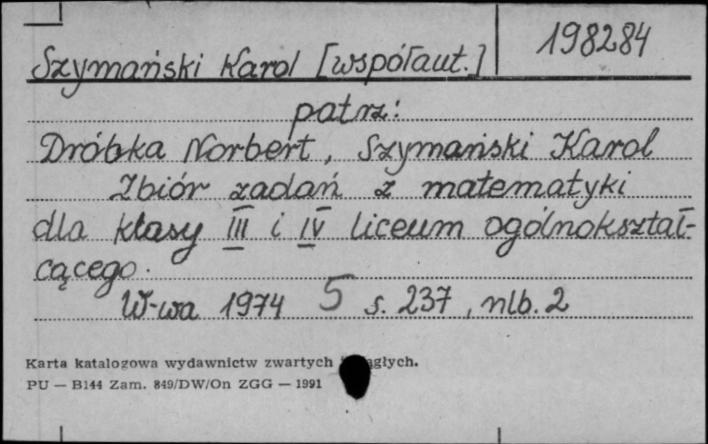 198284
Szymański Karol [współaut.]
patrz:
Dróbka Norbert, Szymański Karol
Zbiór zadań z matematyki
dla klasy III i IV liceum ogólnokształ-
cącego.
W-wa 1974 5 s. 237, nlb. 2
Karta katalogowa wydawnictw zwartych
PU — B144 Zam. 849/DW/On ZGG — 1991